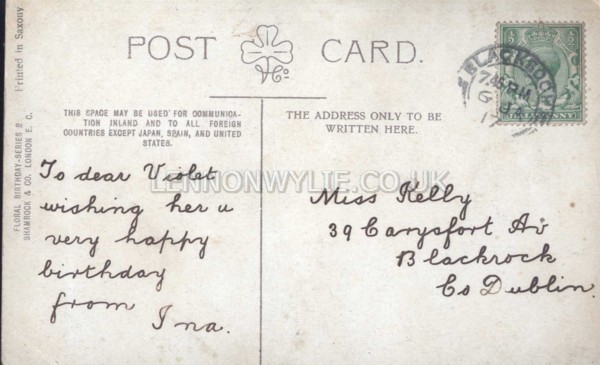 POST CARD.
Printed in Saxony
FLORAL BIRTHDAY-SERIES 2
SHAMROCK & CO. LONDON E. C.
THIS SPACE MAY BE USED FOR COMMUNICA-
TION INLAND AND TO ALL FOREIGN
COUNTRIES EXCEPT JAPAN, SPAIN, AND UNITED
STATES.
To dear Violet
wishing her a
very happy
birthday
from
Ina.
THE ADDRESS ONLY TO BE
WRITTEN HERE.
Miss Kelly
39 Carysfort Av
Blackrock
Co Dublin.
BLACKROCK
17
LENNONWYLIE.CO.UK